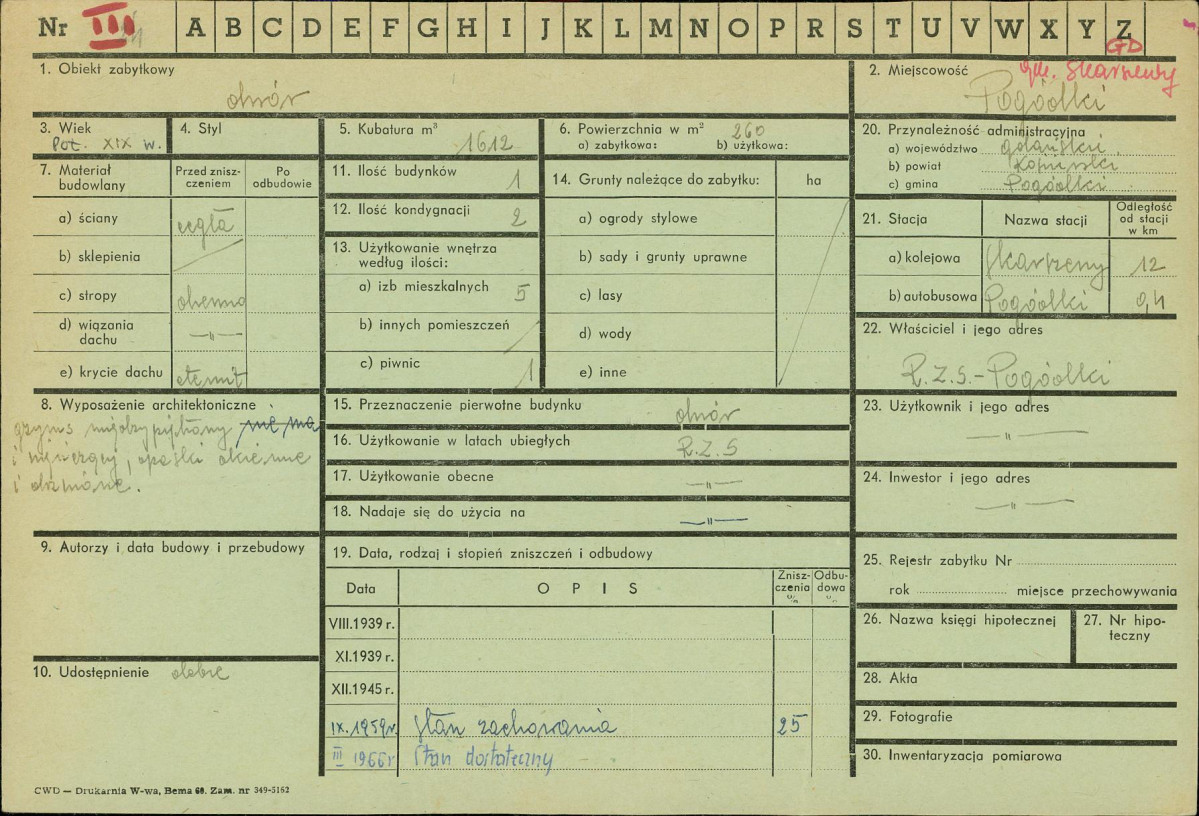 Nr III A B C D E F G H I J K L M N O P R S T U V W X Y Z
GD
1. Obiekt zabytkowy
dwór
2. Miejscowość
gm. Skarszewy
Pogódki
3. Wiek
Poł. XIX w.
4. Styl
5. Kubatura m³
1612
6. Powierzchnia w m² 260
a) zabytkowa: b) użytkowa:
20. Przynależność administracyjna
a) województwo gdański
b) powiat
c) gmina Pogódki
7. Materiał budowlany
Przed zniszczeniem
Po odbudowie
a) ściany cegła
b) sklepienia
c) stropy drewno
d) wiązania dachu —"—
e) krycie dachu eternit
11. Ilość budynków 1
12. Ilość kondygnacji 2
13. Użytkowanie wnętrza według ilości:
a) izb mieszkalnych 5
b) innych pomieszczeń
c) piwnic 1
14. Grunty należące do zabytku: ha
a) ogrody stylowe
b) sady i grunty uprawne
c) lasy
d) wody
e) inne
21. Stacja Nazwa stacji Odległość od stacji w km
a) kolejowa Skarszewy 12
b) autobusowa Pogódki 0,4
22. Właściciel i jego adres
R.Z.S. – Pogódki
8. Wyposażenie architektoniczne
gzyms międzypiętrowy nie ma
i wieńczący, opaski okienne
i drzwiowe.
15. Przeznaczenie pierwotne budynku dwór
16. Użytkowanie w latach ubiegłych R.Z.S
17. Użytkowanie obecne —"—
18. Nadaje się do użycia na —"—
23. Użytkownik i jego adres
—"—
24. Inwestor i jego adres
—"—
9. Autorzy i data budowy i przebudowy
10. Udostępnienie dobre
19. Data, rodzaj i stopień zniszczeń i odbudowy
Data OPIS Zniszczenia w % Odbudowa w %
VIII.1939 r.
XI.1939 r.
XII.1945 r.
IX.1959r. Stan zachowania 25
III 1966r Stan dostateczny
25. Rejestr zabytku Nr
rok miejsce przechowywania
26. Nazwa księgi hipotecznej
27. Nr hipoteczny
28. Akta
29. Fotografie
30. Inwentaryzacja pomiarowa
CWD — Drukarnia W-wa, Bema 60. Zam. nr 349-5162